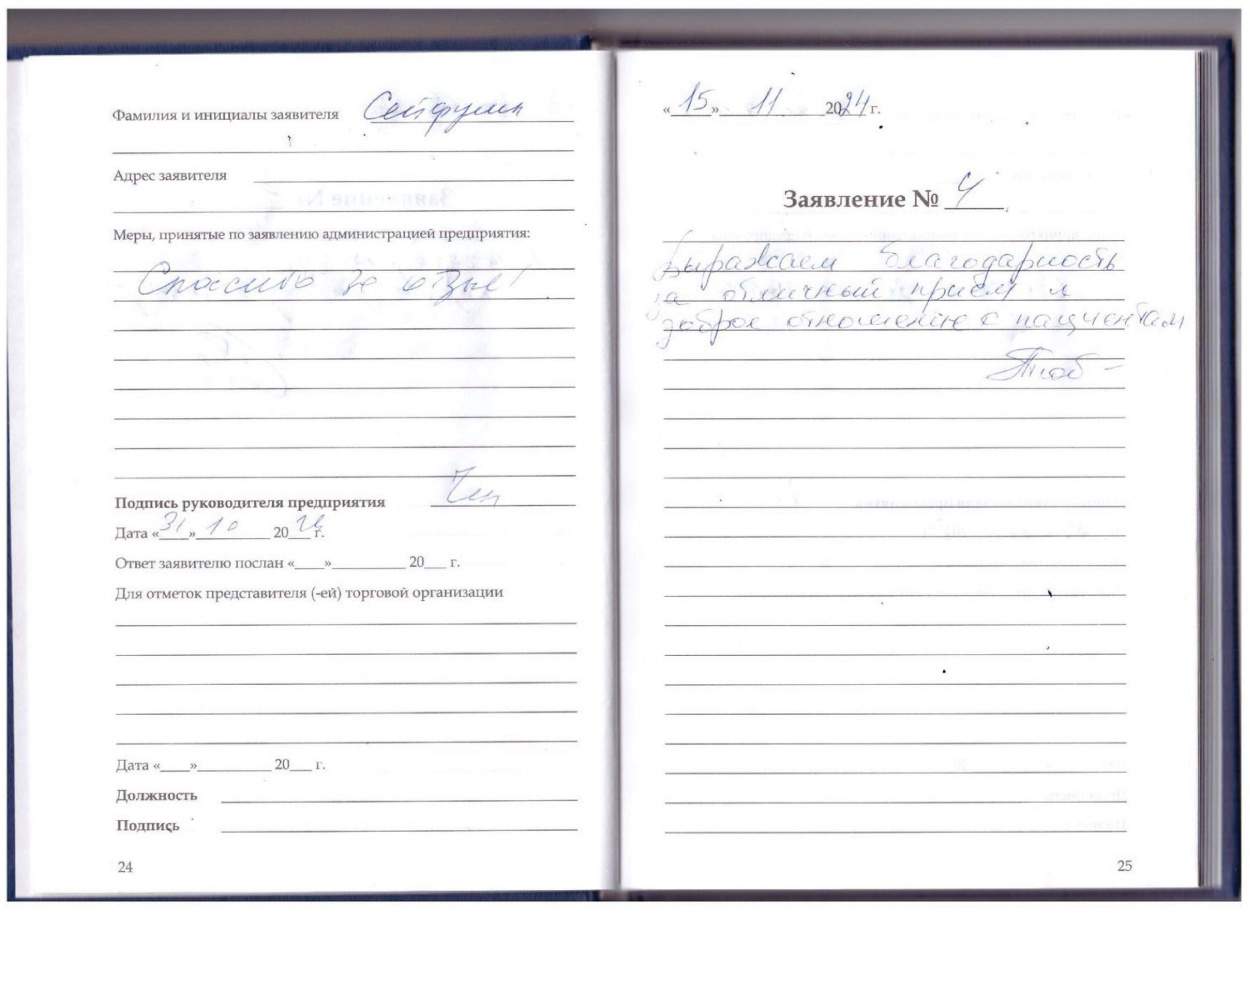 Фамилия и инициалы заявителя
Адрес заявителя
Меры, принятые по заявлению администрацией предприятия:
Спасибо за отзыв!
Подпись руководителя предприятия
Дата «31» 10 2024 г.
Ответ заявителю послан «____»__________ 20___ г.
Для отметок представителя (-ей) торговой организации
Дата «____»__________ 20___ г.
Должность
Подпись
24
«15» 11 2024 г.
Заявление № 4
Выражаем благодарность
за отличный приём и
доброе отношение к пациентам
25